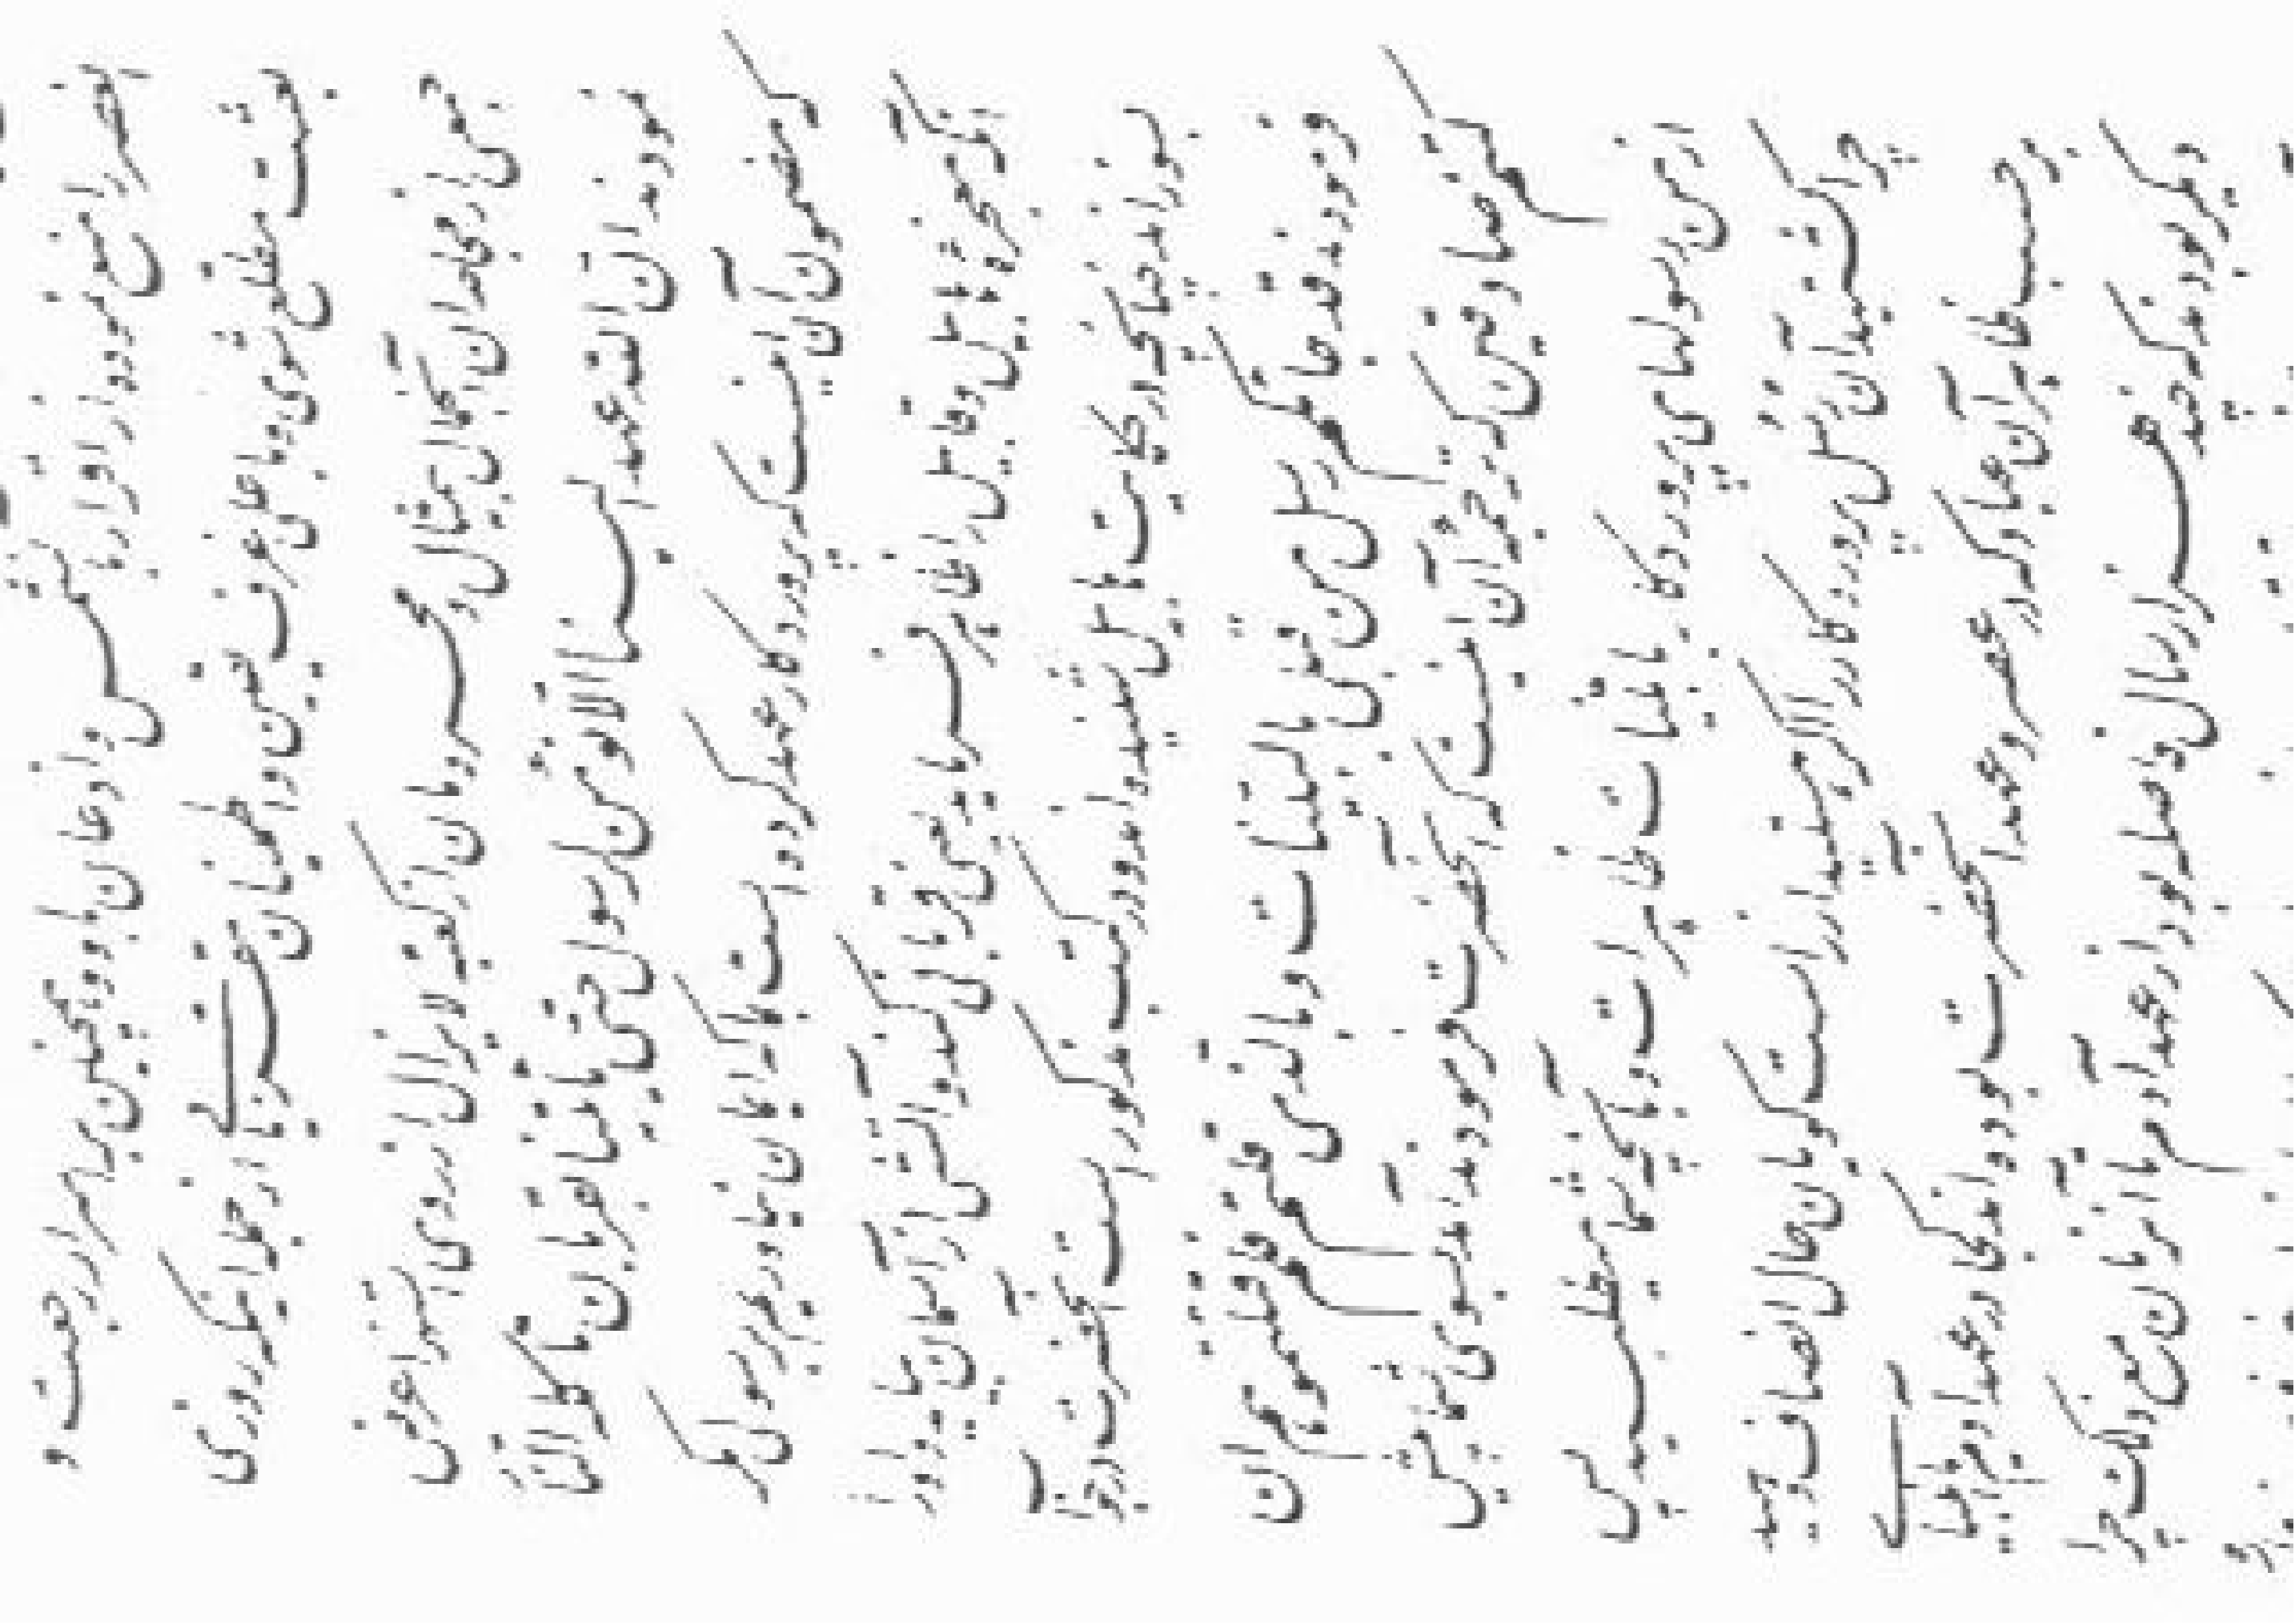 بصر را منع نمود و از اقرار باین شمس و اذعان باو و همچنین بر اسرار رجعت و
بعثت مطلع شوی و باعلی غرف یقین و اطمینان مقرّ یابی از جمله اینکه روزی
جمعی از مجاهدان آن جمال بیمثال و محرومان از کعبه لایزال از روی استهزا عرض
نمودند ان الله عهد الینا الا نؤمن لرسول حتی یأتینا بقربان تأکله النار
که مضمون آن اینست که پروردگار عهد کرده است بما که ایمان نیاوریم برسولی مگر
آنکه معجزه هابیل و قابیل را ظاهر فرماید یعنی قربانی کند و آتشی از آسمان بیاید و او را
بسوزاند چنانچه در حکایت هابیل شنیده‌اند و در کتب مذکور است آنحضرت در جواب
فرمودند قد جاءکم رسل من قبلی بالبینات و بالذی قلتم فلم قتلتموهم ان
کنتم صادقین که ترجمه آن اینست که آنحضرت فرمودند آمد بسوی شما پیش
از من رسولهای پروردگار با بینات ظاهرات و بآنچه شما میطلبید پس
چرا کشتید آن رسل پروردگار را اگر هستید از راست‌گویان حال انصاف دهید
بر حسب ظاهر آن عباد که در عصر و عهد آنحضرت بودند کجا در عهد آدم یا انبیای
دیگر بودند که چند هزار سال فاصله بود از عهد آدم تا آنزمان مع ذلک چرا